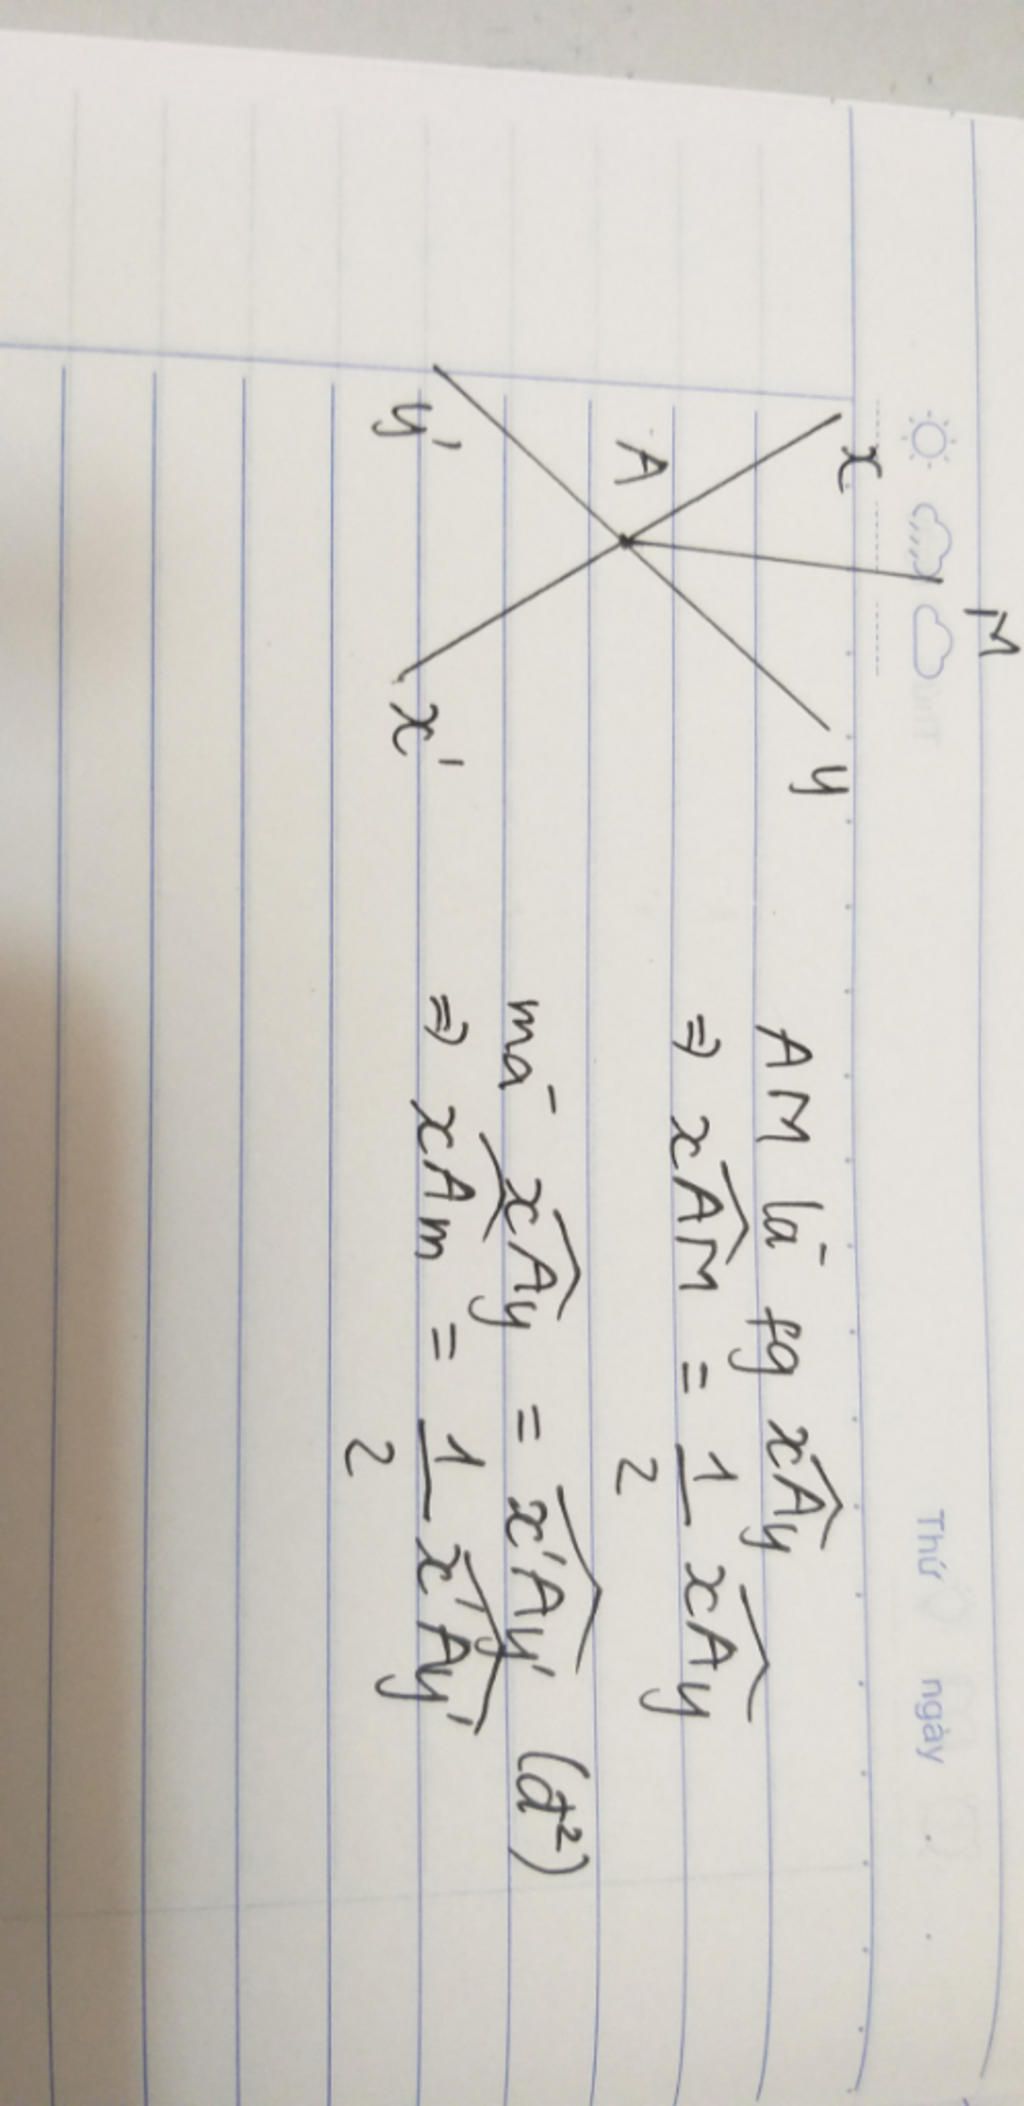 Thứ ngày
M
x
y
A
y'
x'
AM là fg \widehat{xAy}
⇒ \widehat{xAM} = \frac{1}{2} \widehat{xAy}
mà \widehat{xAy} = \widehat{x'Ay'} (đ²)
⇒ \widehat{xAm} = \frac{1}{2} \widehat{x'Ay'}